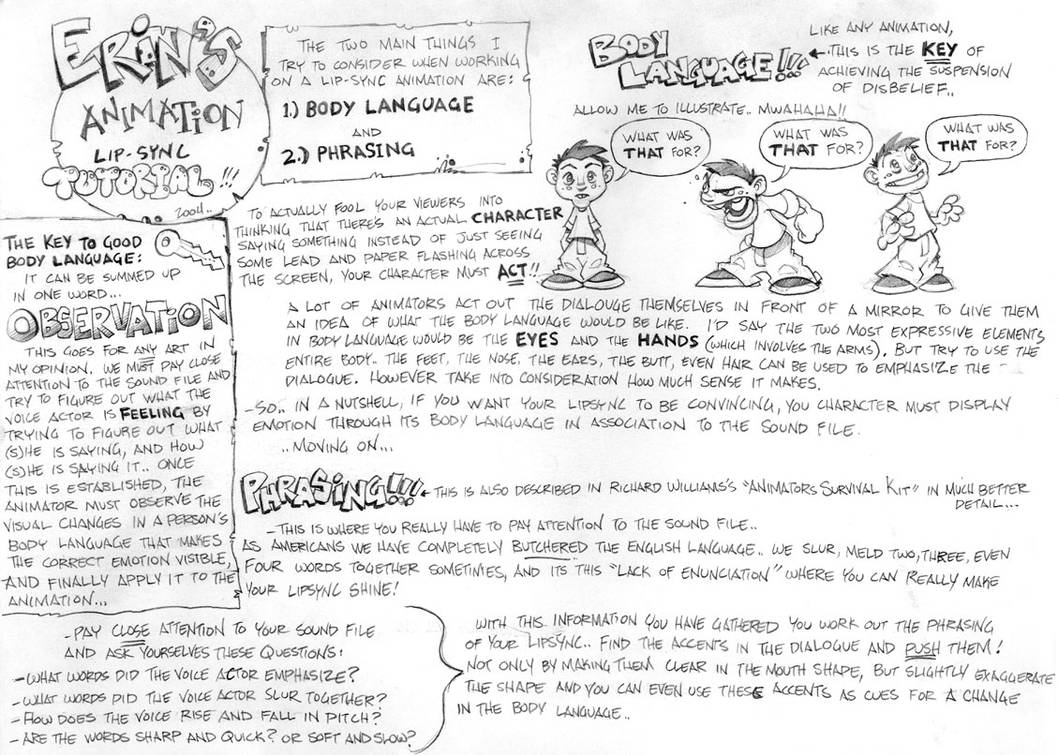 ERON'S
ANIMATION
LIP-SYNC
TUTORIAL!!!
2004..
THE TWO MAIN THINGS I
TRY TO CONSIDER WHEN WORKING
ON A LIP-SYNC ANIMATION ARE:
1.) BODY LANGUAGE
AND
2.) PHRASING
BODY
LANGUAGE!!!
LIKE ANY ANIMATION,
THIS IS THE KEY OF
ACHIEVING THE SUSPENSION
OF DISBELIEF..
ALLOW ME TO ILLUSTRATE.. MWAHAHA!!
WHAT WAS
THAT FOR?
WHAT WAS
THAT FOR?
WHAT WAS
THAT FOR?
TO ACTUALLY FOOL YOUR VIEWERS INTO
THINKING THAT THERE'S AN ACTUAL CHARACTER
SAYING SOMETHING INSTEAD OF JUST SEEING
SOME LEAD AND PAPER FLASHING ACROSS
THE SCREEN, YOUR CHARACTER MUST ACT!!
A LOT OF ANIMATORS ACT OUT THE DIALOUGE THEMSELVES IN FRONT OF A MIRROR TO GIVE THEM
AN IDEA OF WHAT THE BODY LANGUAGE WOULD BE LIKE. I'D SAY THE TWO MOST EXPRESSIVE ELEMENTS
IN BODY LANGUAGE WOULD BE THE EYES AND THE HANDS (WHICH INVOLVES THE ARMS). BUT TRY TO USE THE
ENTIRE BODY. THE FEET, THE NOSE, THE EARS, THE BUTT, EVEN HAIR CAN BE USED TO EMPHASIZE THE
DIALOGUE. HOWEVER TAKE INTO CONSIDERATION HOW MUCH SENSE IT MAKES.
-SO.. IN A NUTSHELL, IF YOU WANT YOUR LIPSYNC TO BE CONVINCING, YOU CHARACTER MUST DISPLAY
EMOTION THROUGH ITS BODY LANGUAGE IN ASSOCIATION TO THE SOUND FILE.
..MOVING ON...
THE KEY TO GOOD
BODY LANGUAGE:
IT CAN BE SUMMED UP
IN ONE WORD...
OBSERVATION
THIS GOES FOR ANY ART IN
MY OPINION. WE MUST PAY CLOSE
ATTENTION TO THE SOUND FILE AND
TRY TO FIGURE OUT WHAT THE
VOICE ACTOR IS FEELING BY
TRYING TO FIGURE OUT WHAT
(S)HE IS SAYING, AND HOW
(S)HE IS SAYING IT.. ONCE
THIS IS ESTABLISHED, THE
ANIMATOR MUST OBSERVE THE
VISUAL CHANGES IN A PERSON'S
BODY LANGUAGE THAT MAKES
THE CORRECT EMOTION VISIBLE,
AND FINALLY APPLY IT TO THE
ANIMATION...
PHRASING!!!
THIS IS ALSO DESCRIBED IN RICHARD WILLIAMS'S "ANIMATORS SURVIVAL KIT" IN MUCH BETTER
DETAIL...
-THIS IS WHERE YOU REALLY HAVE TO PAY ATTENTION TO THE SOUND FILE..
AS AMERICANS WE HAVE COMPLETELY BUTCHERED THE ENGLISH LANGUAGE.. WE SLUR, MELD TWO, THREE, EVEN
FOUR WORDS TOGETHER SOMETIMES, AND ITS THIS "LACK OF ENUNCIATION" WHERE YOU CAN REALLY MAKE
YOUR LIPSYNC SHINE!
-PAY CLOSE ATTENTION TO YOUR SOUND FILE
AND ASK YOURSELVES THESE QUESTIONS:
-WHAT WORDS DID THE VOICE ACTOR EMPHASIZE?
-WHAT WORDS DID THE VOICE ACTOR SLUR TOGETHER?
-HOW DOES THE VOICE RISE AND FALL IN PITCH?
-ARE THE WORDS SHARP AND QUICK? OR SOFT AND SLOW?
WITH THIS INFORMATION YOU HAVE GATHERED YOU WORK OUT THE PHRASING
OF YOUR LIPSYNC.. FIND THE ACCENTS IN THE DIALOGUE AND PUSH THEM!
NOT ONLY BY MAKING THEM CLEAR IN THE MOUTH SHAPE, BUT SLIGHTLY EXAGGERATE
THE SHAPE AND YOU CAN EVEN USE THESE ACCENTS AS CUES FOR A CHANGE
IN THE BODY LANGUAGE..